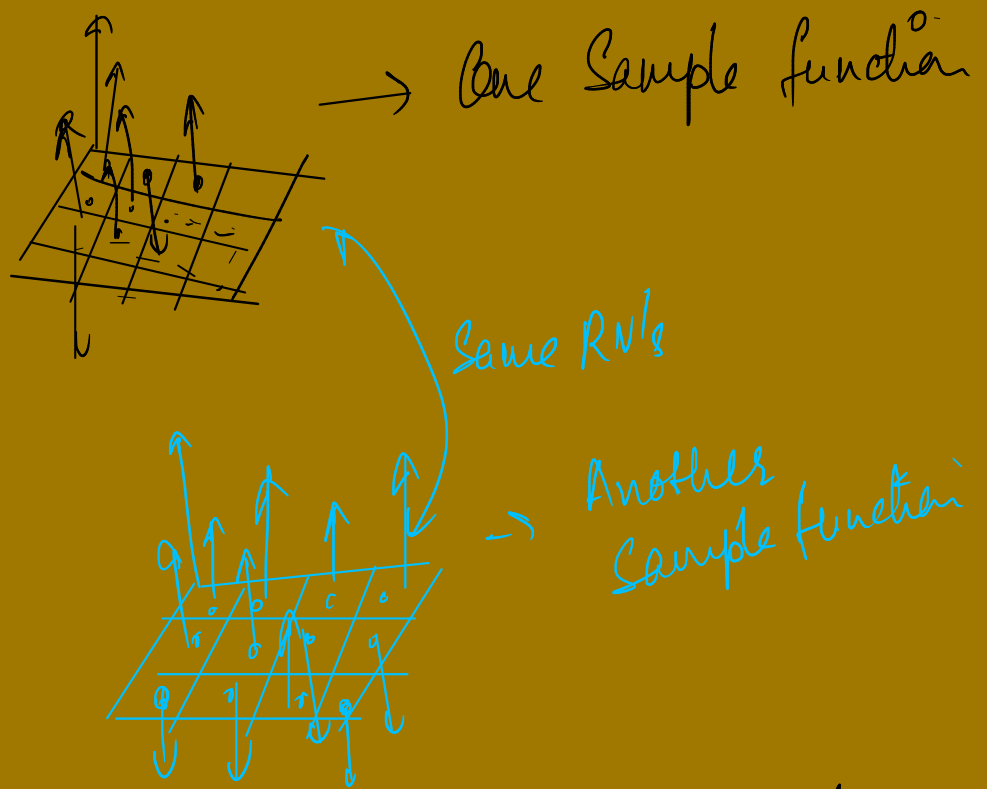 One Sample function
Same RV's
Another
Sample function